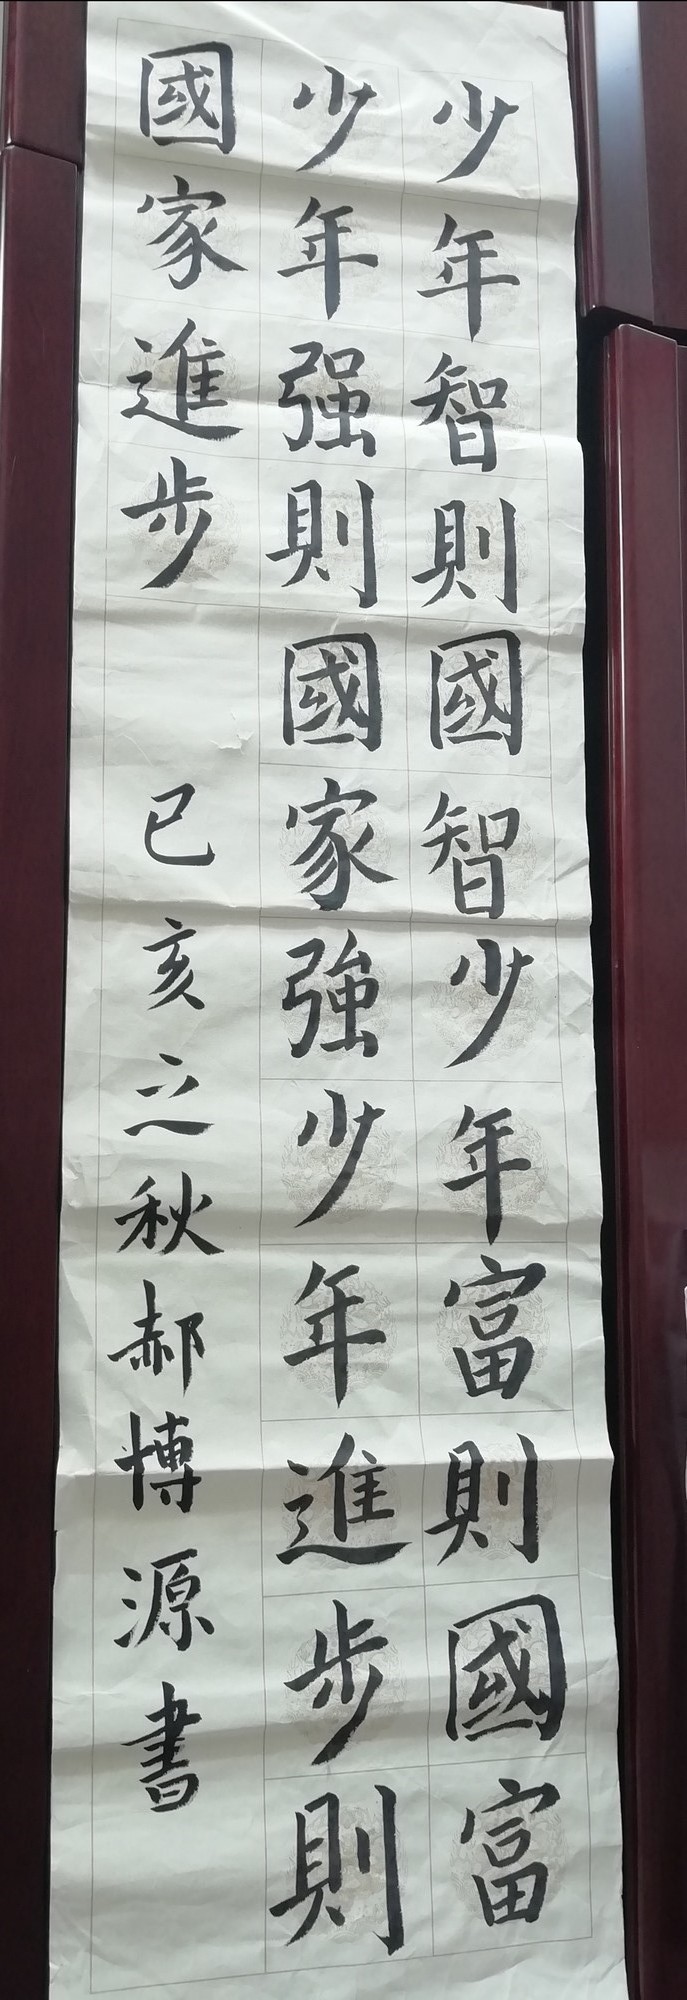 少年智則國智少年富則國富
少年强則國家強少年進步則
國家進步
已亥之秋郝博源書